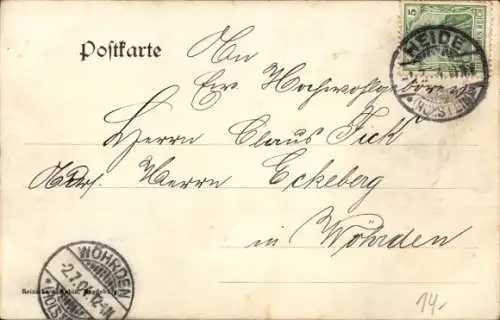 5
Postkarte
HEIDE
(HOLSTEIN)
An
Ew. Hochwohlgeboren
Herrn Claus Fick
Herrn Eckeberg
in Wöhrden
WÖHRDEN
2.7.04.
(HOLSTEIN)
14.-